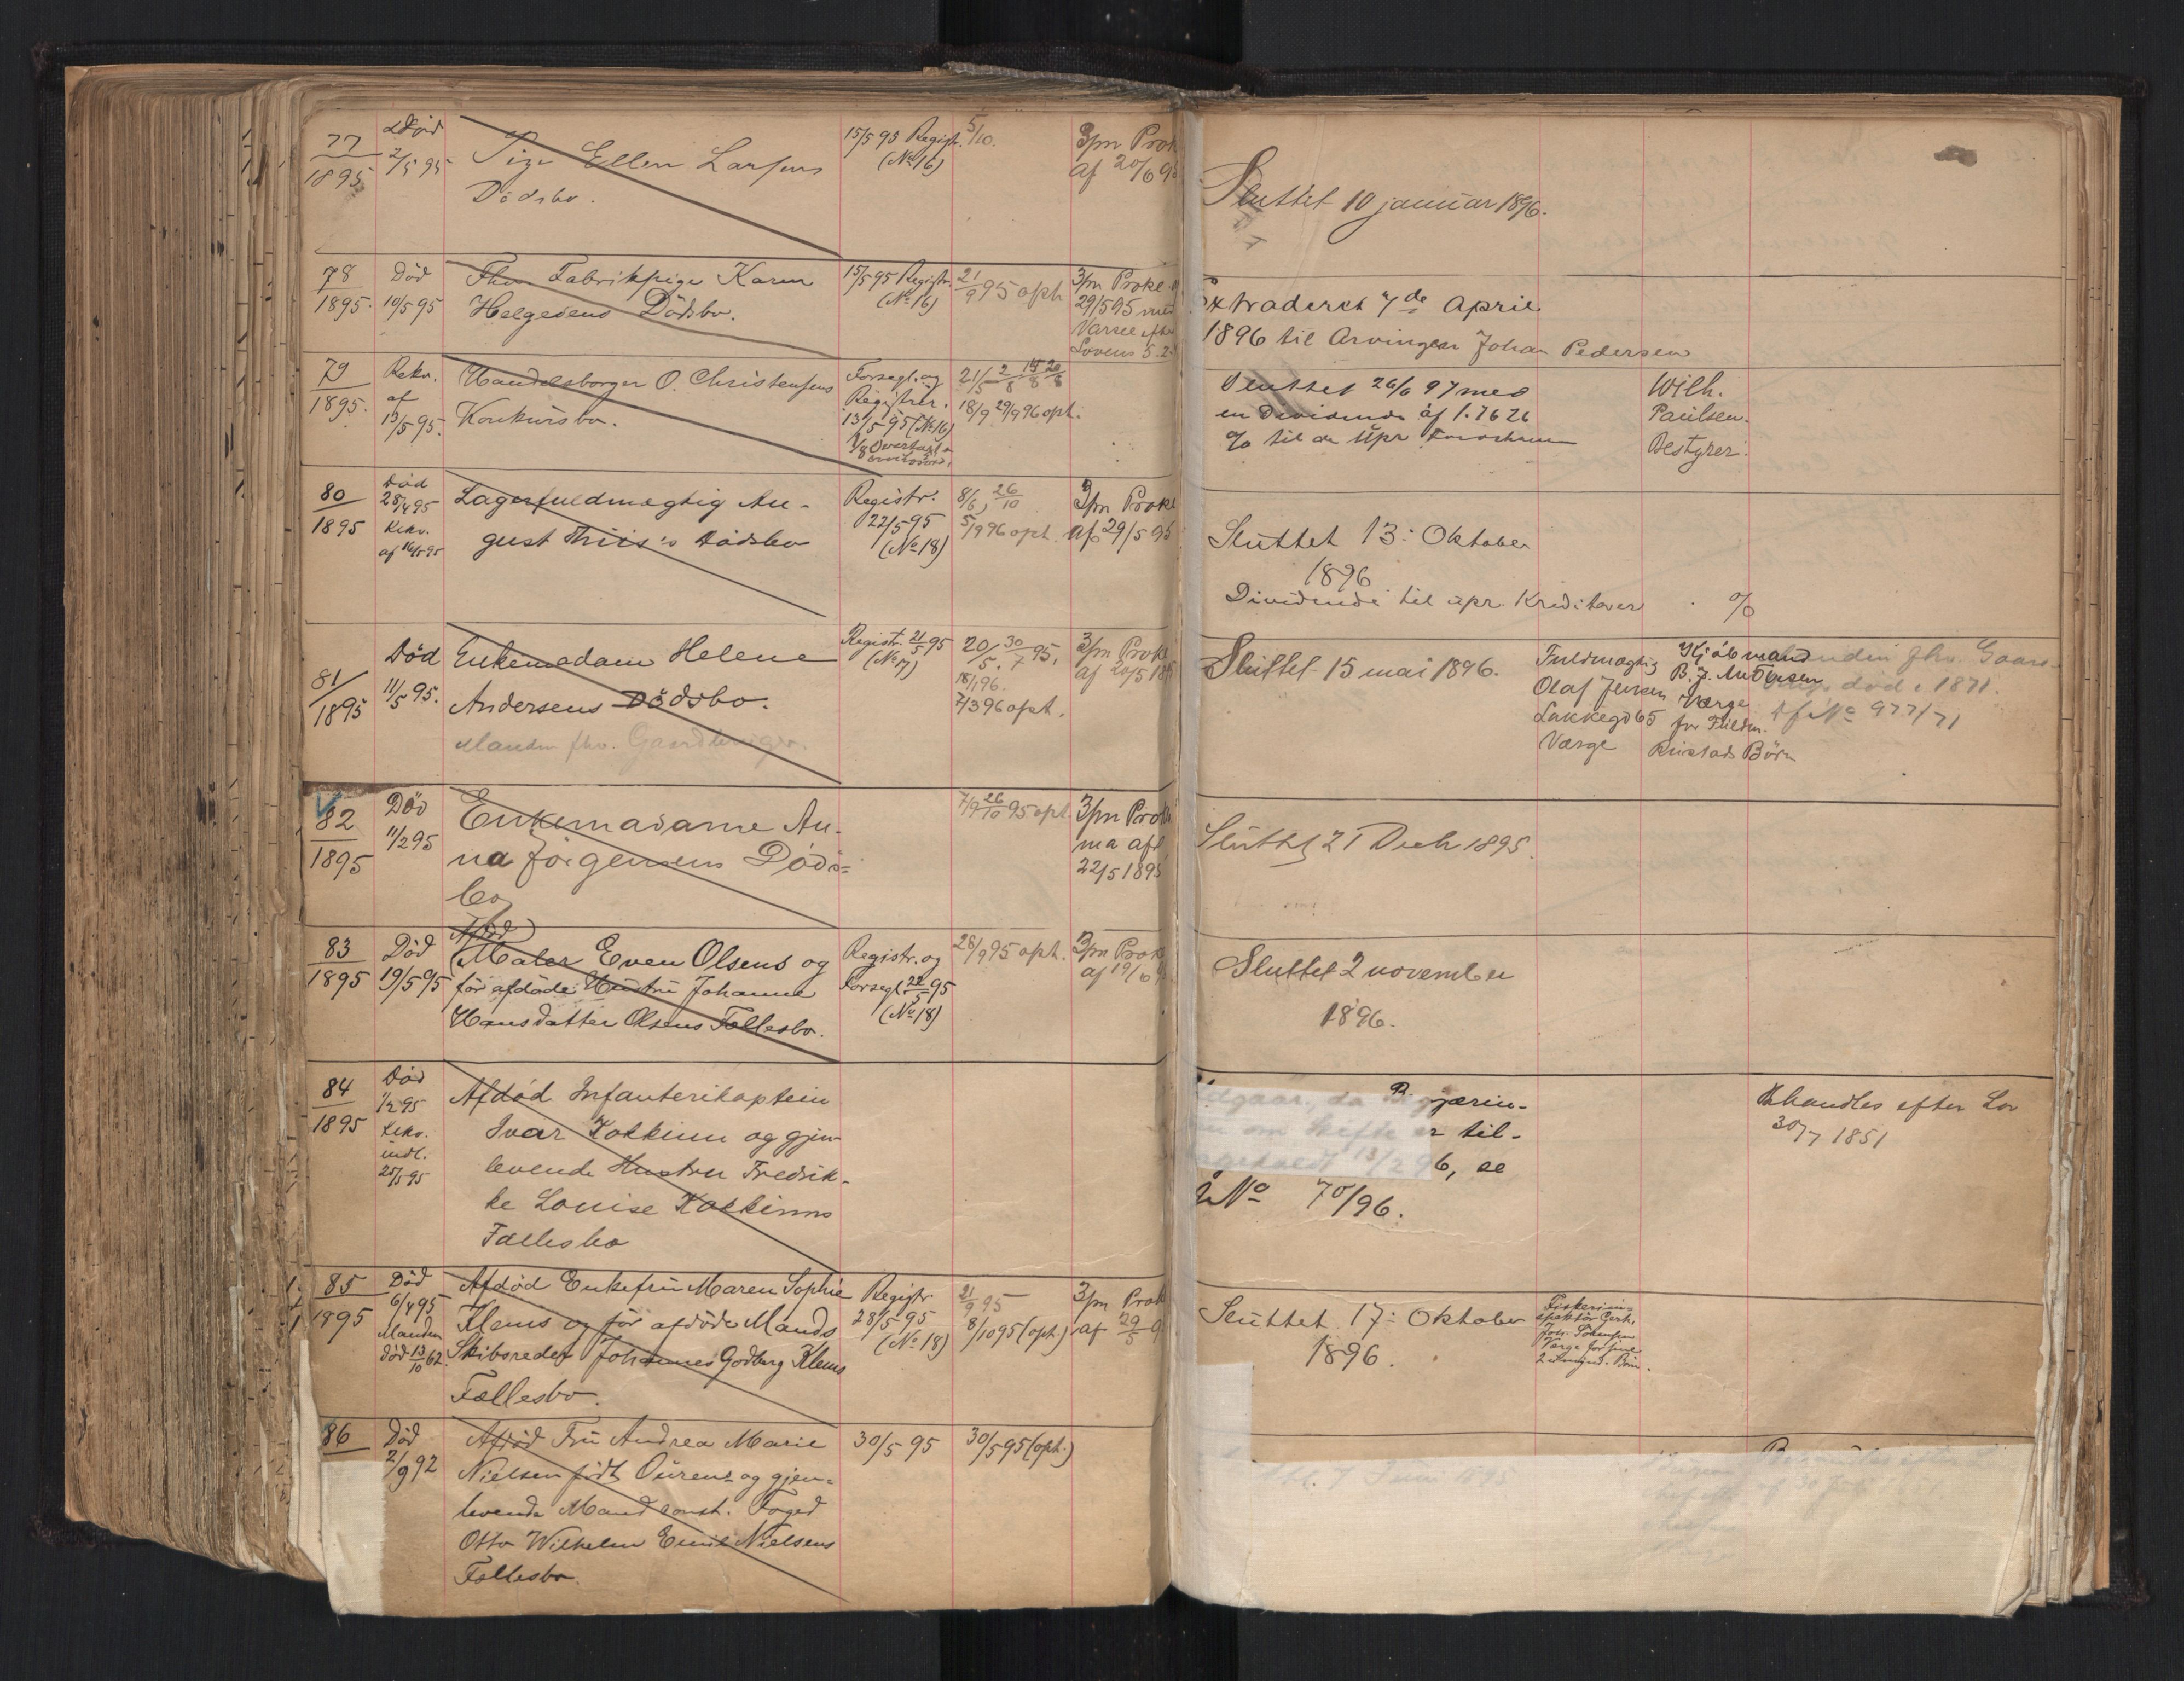 77
1895
Død
2/5 95
Pige Ellen Larsens
Dødsbo.
15/5 95 Registr.
(No 16)
5/10.
3pn Prok
af 20/6 95
Sluttet 10 januar 1896.
78
1895.
Død
10/5 95
Fhv. Fabrikpige Karen
Helgesens Dødsbo.
15/5 95 Registr.
(No 16)
21/9 95 oph
3pn Prokl.
29/5 95 med
Varsel efter
Lovens § 2
Extraderet 7de April
1896 til Arvingen Johan Pedersen
79
1895.
Rekv.
af
13/5 95.
Handelsborger O. Christensens
Konkursbo.
Forsegl. og
Registrer.
13/5 95 (No 16)
21/5 2/8 15/8 20/8
18/9 29/9 96 opt.
Sluttet 26/6 97 med
en Dividende af 1.7626
% til de upr
Wilh.
Paulsen.
Bestyrer.
80
1895
Død
28/4 95
Rekv.
af 16/5 95
Lagerfuldmægtig Au-
gust Thiis's Dødsbo
Registr.
22/5 95
(No 18)
8/6, 26/10
5/9 96 opt.
3pn Prokl
af 29/5 95
Sluttet 13: Oktober
1896
Dividende til upr. Kreditorer . %
81/
1895
Død
11/5 95.
Enkemadam Helene
Andersens Dødsbo.
Manden fhv. Gaardbruger.
Registr. 21/5 95
(No 17)
20/5. 30/7 95,
18/1 96.
7/3 96 opt.
3pn Prokl
af 20/5 189
Sluttet 15 mai 1896.
Fuldmægtig
Olaf Jensen
Lakkegd 65
Værge
Kjøbmand
B. J. Andersen
Værge
for Fuldm.
Børn
Manden fhv. Gaard-
død i 1871.
Df No 977/71
82
1895
Død
11/2 95
Enkemadame An-
na Jørgensens Døds-
bo
7/9 26/10 95 opt.
3pn Prok
ma afl
22/5 1895
Sluttet 21 Decb 1895.
83
1895
Død
19/5 95
Afdød
Maler Even Olsens og
før afdøde Hustru Johanne
Hansdatter Olsens Fællesbo.
Registr. og
Forsegl. 22/5 95
(No 18)
28/9 95 opt.
3pn Prok
af 19/6
Sluttet 2 november
1896.
84
1895
Død
1/2 95
Rekv.
indl.
25/5 95
Afdød Infanterikaptein
Ivar Kokkinn og gjen-
levende Hustru Fredrik-
ke Louise Kokkinns
Fællesbo
Udgaar, da Begjærin-
gen om Skifte er til-
bagekaldt 13/2 96, se
No 70/96.
Behandles efter Lov
30/7 1851
85
1895
Død
6/4 95
Manden
død 13/10 62.
Afdød Enkefru Maren Sophie
Klems og før afdøde Mands
Skibsreder Johannes Godberg Klems
Fællesbo.
Registr
28/5 95
(No 18)
21/9 95
8/10 95 (opt.)
3pn Prok
af 29/5 9
Sluttet 17: Oktober
1896.
Fiskeriin-
spektør Gerh.
Joh.
Værge for sine
2 Børn.
86
Død
2/9 92
Afdød Fru Andrea Marie
Nielsen født Ourens og gjen-
levende Mand const. Foged
Otto Wilhelm Emil Nielsens
Fællesbo.
30/5 95
30/5 95 (opt.)
7 Juni 1895
Behandles efter
af 30 Juli 1851